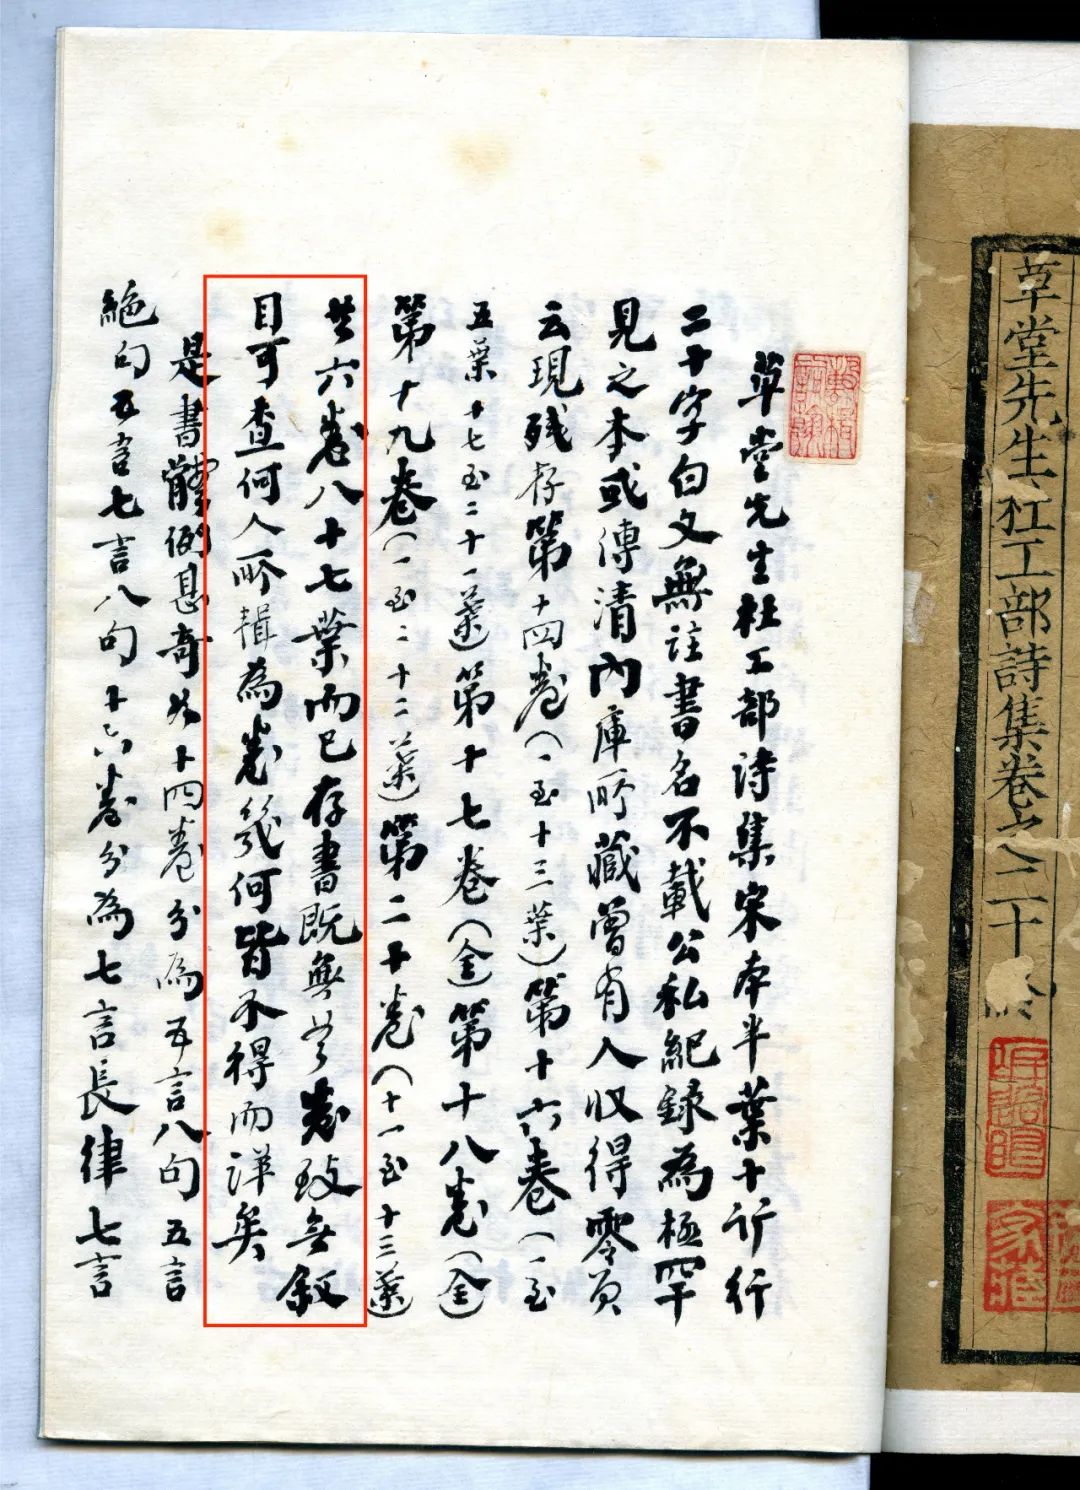 草堂先生杜工部詩集卷之二十
草堂先生杜工部詩集宋本半葉十行行
二十字白文無註書名不載公私紀録為極罕
見之本或傳清內庫所藏曾有人收得零頁
云現殘存第十四卷(一至十三葉)第十六卷(一至
五葉十七至二十一葉)第十七卷(全)第十八卷(全)
第十九卷(一至二十二葉)第二十卷(十一至十三葉)
共六卷八十七葉而已存書既無首卷致無敘
目可查何人所輯為卷幾何皆不得而詳矣
是書體例甚奇如十四卷分為五言八句五言
絕句五言七言八句十六卷分為七言長律七言